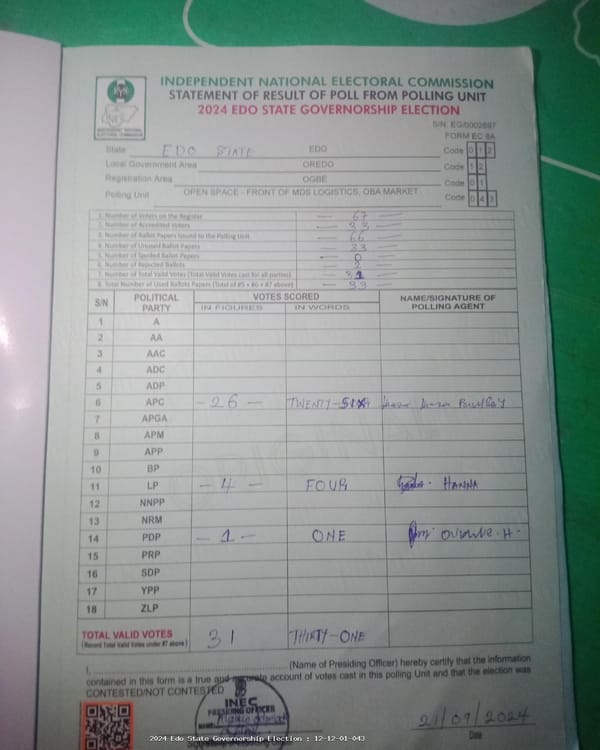 INDEPENDENT NATIONAL ELECTORAL COMMISSION
STATEMENT OF RESULT OF POLL FROM POLLING UNIT
2024 EDO STATE GOVERNORSHIP ELECTION
S/N: EG/0002697
FORM EC 8A
State EDO STATE EDO Code 0 1 2
Local Government Area OREDO Code 1 2
Registration Area OGBE Code 0 1
Polling Unit OPEN SPACE - FRONT OF MDS LOGISTICS, OBA MARKET Code 0 4 3
1. Number of Voters on the Register — 67 —
2. Number of Accredited Voters — 33 —
3. Number of Ballot Papers Issued to the Polling Unit — 66 —
4. Number of Unused Ballot Papers — 33 —
5. Number of Spoiled Ballot Papers — 0 —
6. Number of Rejected Ballots — 2 —
7. Number of Total Valid Votes (Total Valid Votes cast for all parties) — 31 —
8. Total Number of Used Ballots Papers (Total of #5 + #6 + #7 above) — 33 —
S/N POLITICAL PARTY VOTES SCORED NAME/SIGNATURE OF POLLING AGENT
IN FIGURES IN WORDS
1 A
2 AA
3 AAC
4 ADC
5 ADP
6 APC - 26 - TWENTY-SIX
7 APGA
8 APM
9 APP
10 BP
11 LP - 4 - FOUR HANNA
12 NNPP
13 NRM
14 PDP - 1 - ONE
15 PRP
16 SDP
17 YPP
18 ZLP
TOTAL VALID VOTES 31 THIRTY-ONE
(Record Total Valid Votes under #7 above)
I, (Name of Presiding Officer) hereby certify that the information
contained in this form is a true and account of votes cast in this polling Unit and that the election was
CONTESTED/NOT CONTESTED
INEC
PRESIDING OFFICER
21/09/2024
Date
2024 Edo State Governorship Election : 12-12-01-043